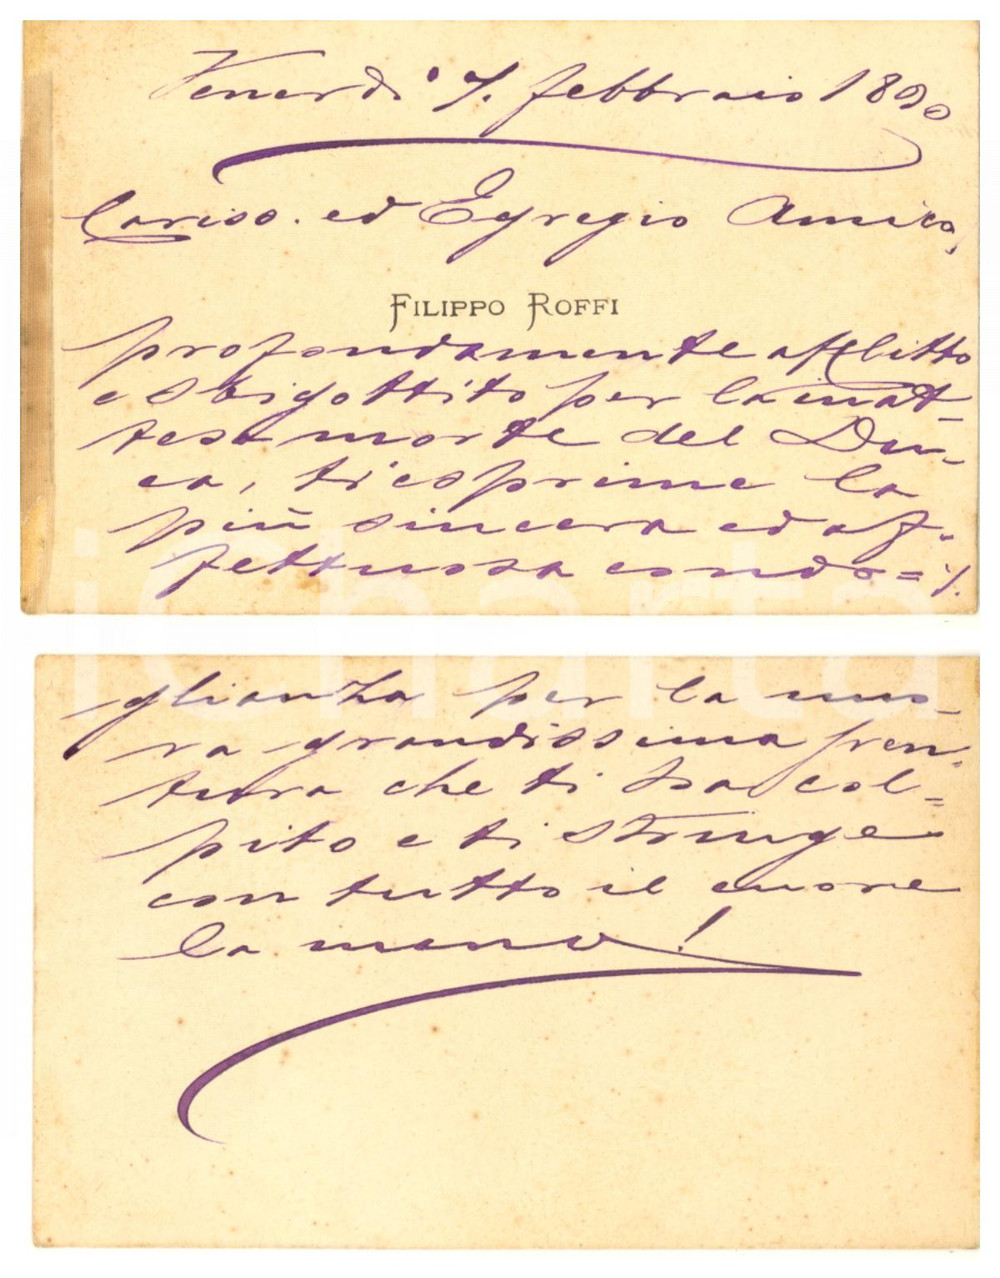 Venerdì 7. febbraio 1890
Cariss. ed Egregio Amico,
FILIPPO ROFFI
profondamente afflitto
e sbigottito per la inat-
tesa morte del Du-
ca, ti esprime la
più sincera ed af-
fettuosa condo= ./.
glianza per la nuo-
va grandissima sven-
tura che ti ha col-
pito e ti stringe
con tutto il cuore
la mano!
iCharta